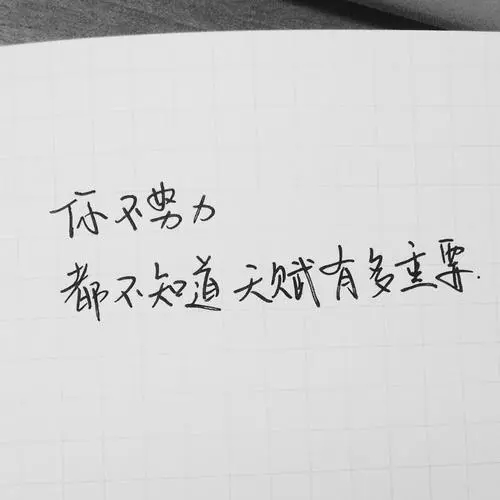 你不努力
都不知道天赋有多重要.